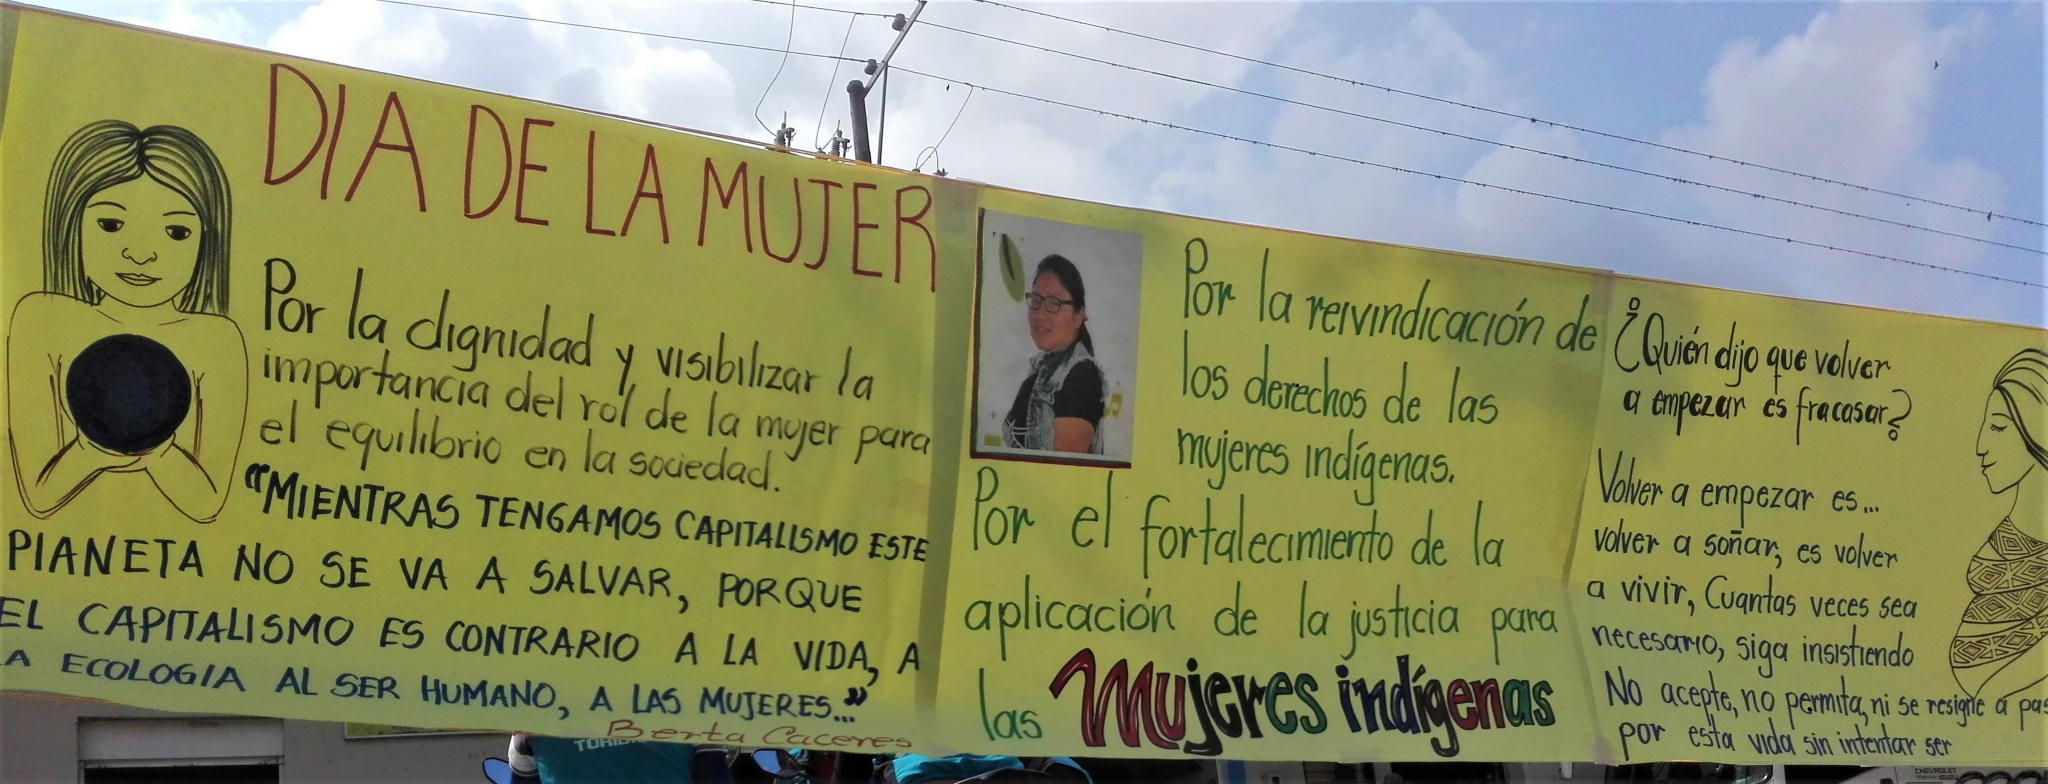 DIA DE LA MUJER
Por la dignidad y visibilizar la
importancia del rol de la mujer para
el equilibrio en la sociedad.
"MIENTRAS TENGAMOS CAPITALISMO ESTE
PlANETA NO SE VA A SALVAR, PORQUE
EL CAPITALISMO ES CONTRARIO A LA VIDA, A
LA ECOLOGIA AL SER HUMANO, A LAS MUJERES..."
Berta Caceres
Por la reivindicación de
los derechos de las
mujeres indígenas.
Por el fortalecimiento de la
aplicación de la justicia para
las Mujeres indígenas
¿Quién dijo que volver
a empezar es fracasar?
Volver a empezar es...
volver a soñar, es volver
a vivir, Cuantas veces sea
necesario, siga insistiendo
No acepte, no permita, ni se resigne a pas
por esta vida sin intentar ser
CHEVROLET
ISUZU